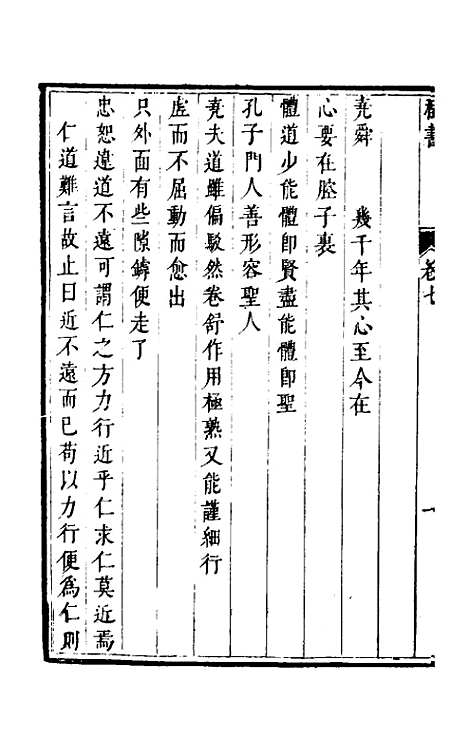 卷七
一
堯舜　　幾千年其心至今在
心要在腔子裏
體道少能體卽賢盡能體卽聖
孔子門人善形容聖人
堯夫道雖偏駁然卷舒作用極熟又能謹細行
虛而不屈動而愈出
只外面有些隙罅便走了
忠恕違道不遠可謂仁之方力行近乎仁求仁莫近焉
仁道難言故止曰近不遠而已苟以力行便爲仁則